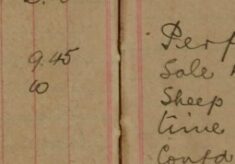 9.45
10
Perf
Sale
Sheep
time
Contd